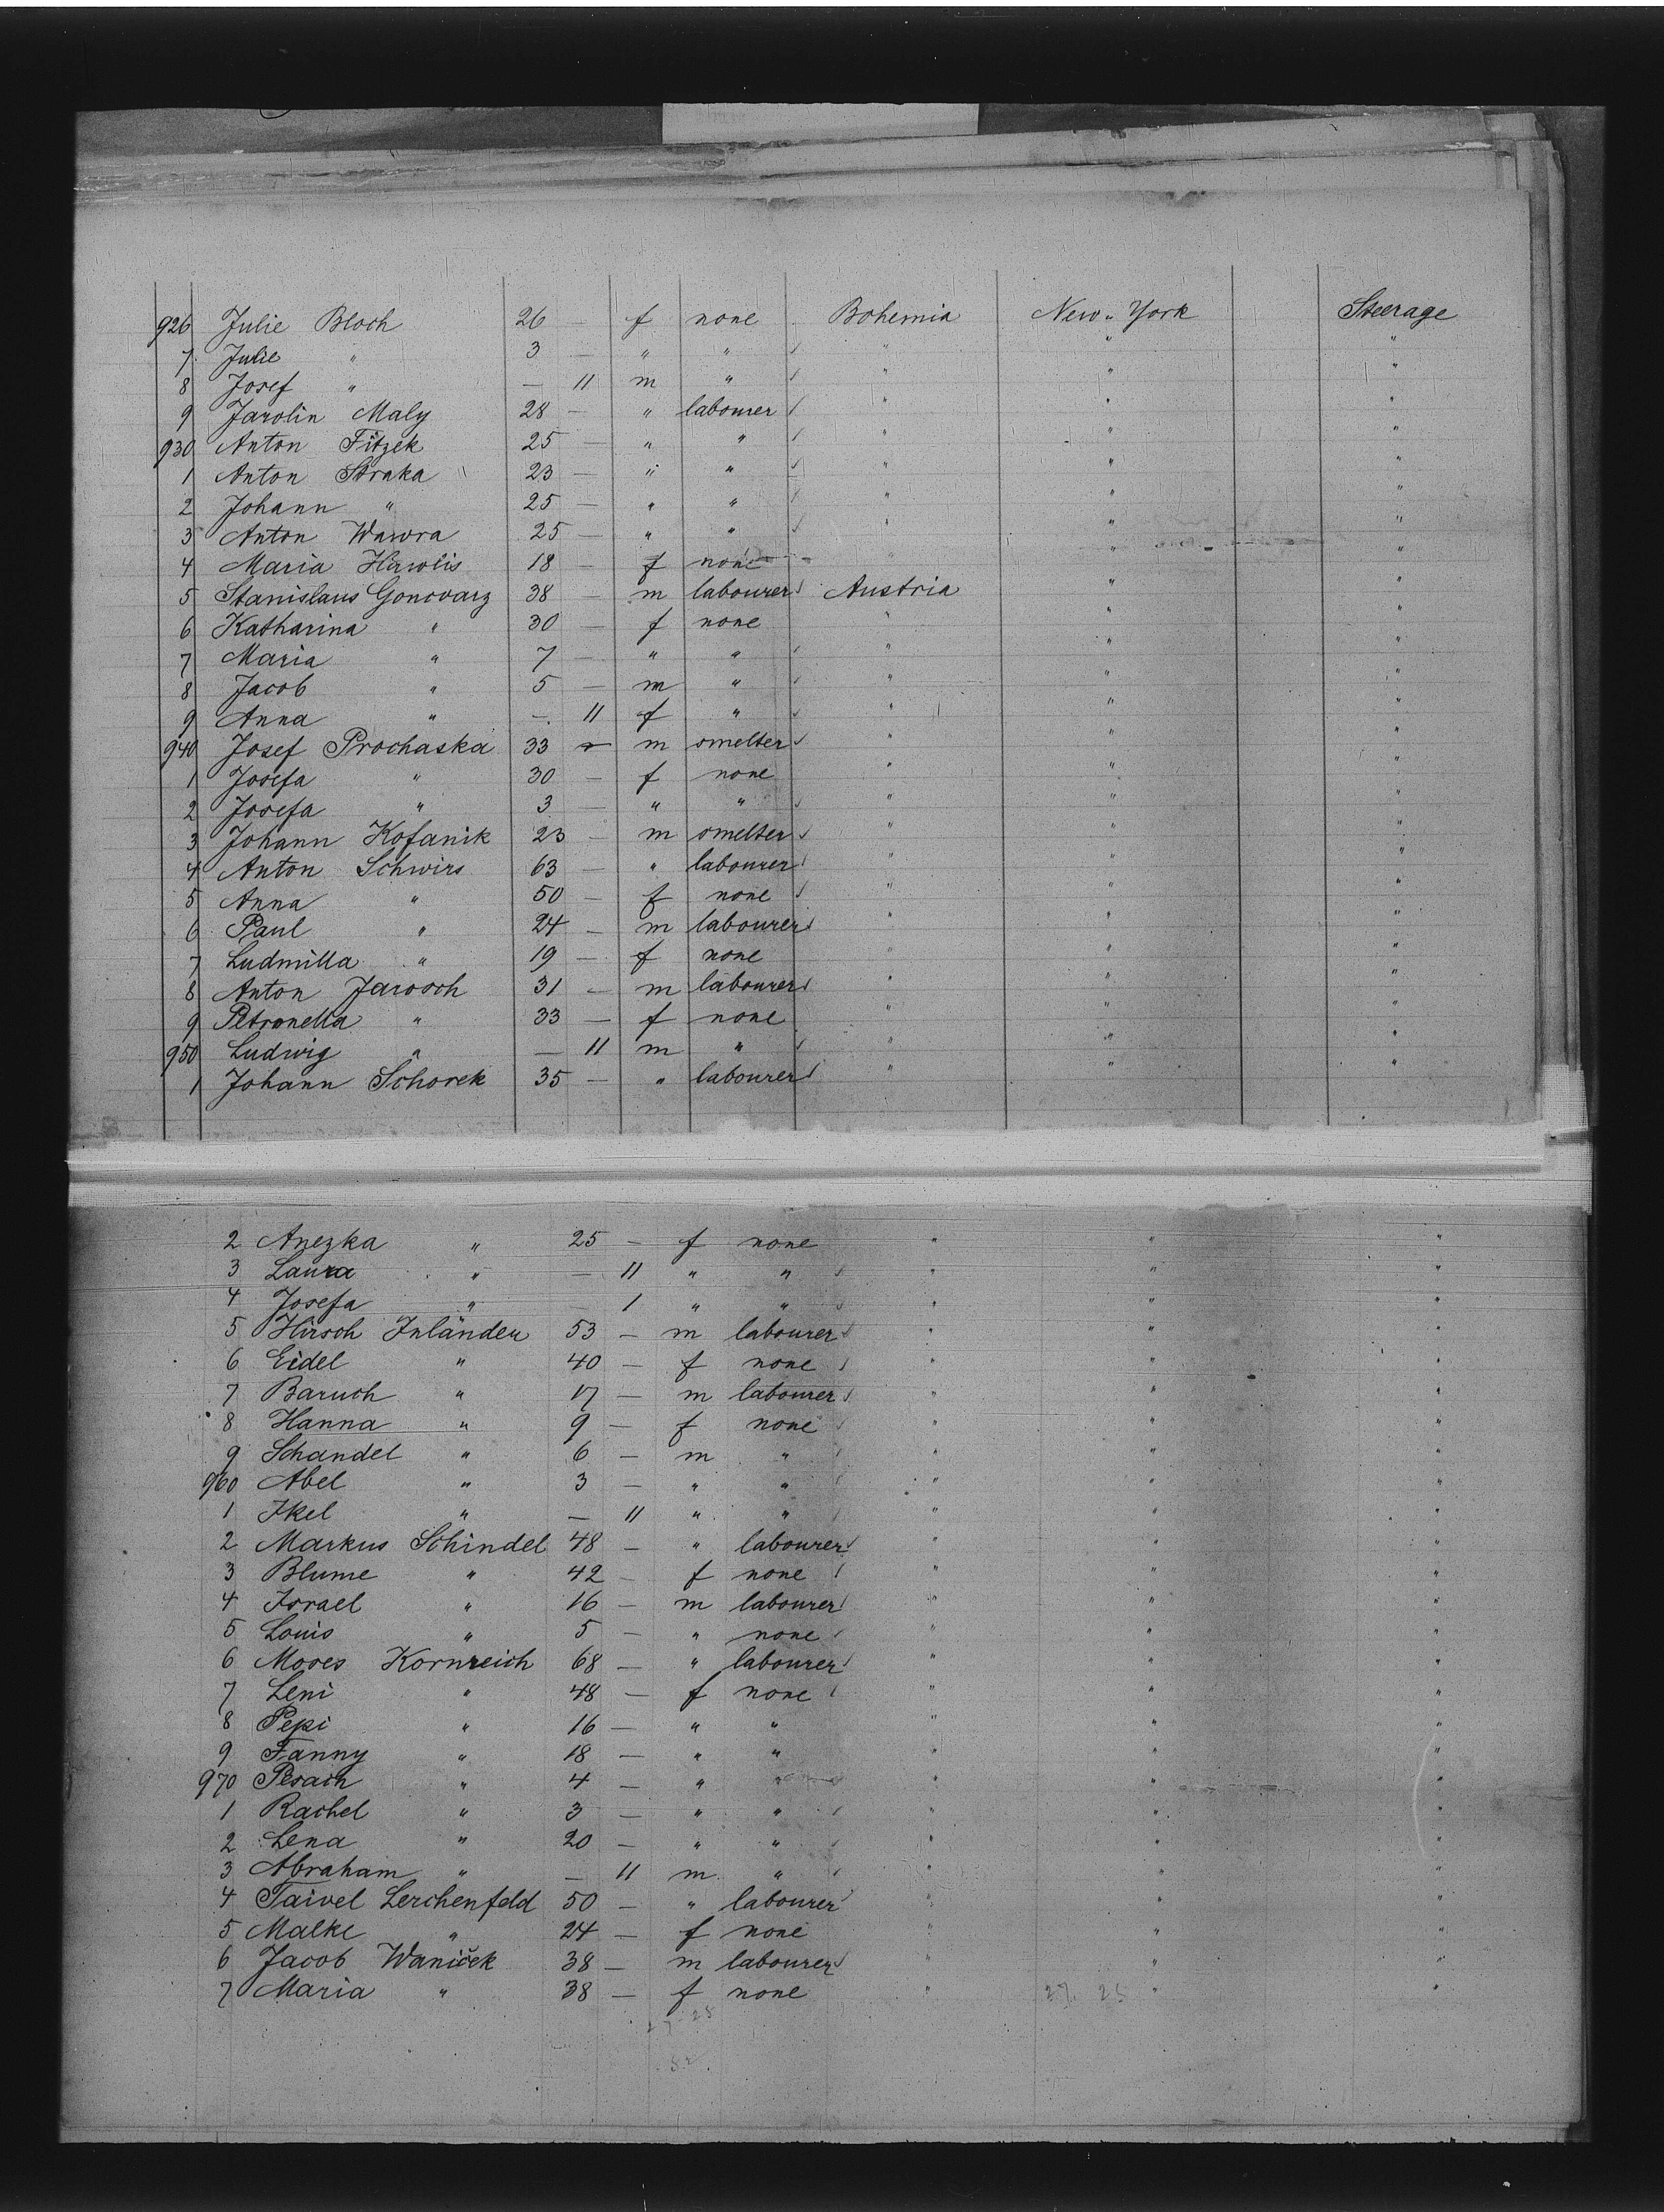 926 Julie Bloch 26 — f none Bohemia New-York Steerage
7 Julie " 3 — " " " " "
8 Josef " — 11 m " " " "
9 Jarolin Maly 28 — " labourer " " "
930 Anton Fitzek 25 — " " " " "
1 Anton Straka 23 — " " " " "
2 Johann " 25 — " " " " "
3 Anton Wawra 25 — " " " " "
4 Maria Hawlis 18 — f none " " "
5 Stanislaus Goncvarz 38 — m labourer Austria " "
6 Katharina " 30 — f none " " "
7 Maria " 7 — " " " " "
8 Jacob " 5 — m " " " "
9 Anna " — 11 f " " " "
940 Josef Prochaska 33 — m smelter " " "
1 Josefa " 30 — f none " " "
2 Josefa " 3 — " " " " "
3 Johann Kofanik 23 — m smelter " " "
4 Anton Schwirs 63 — " labourer " " "
5 Anna " 50 — f none " " "
6 Paul " 24 — m labourer " " "
7 Ludmilla " 19 — f none " " "
8 Anton Jarosch 31 — m labourer " " "
9 Petronella " 33 — f none " " "
950 Ludwig " — 11 m " " " "
1 Johann Schorek 35 — " labourer " " "
2 Anezka " 25 — f none " " "
3 Laura " — 11 " " " " "
4 Josefa " 1 " " " " "
5 Hirsch Inländer 53 — m labourer " " "
6 Eidel " 40 — f none " " "
7 Baruch " 17 — m labourer " " "
8 Hanna " 9 — f none " " "
9 Schandel " 6 — m " " " "
960 Abel " 3 — " " " " "
1 Ikel " — 11 " " " " "
2 Markus Schindel 48 — " labourer " " "
3 Blume " 42 — f none " " "
4 Israel " 16 — m labourer " " "
5 Louis " 5 — " none " " "
6 Moses Kornreich 68 — " labourer " " "
7 Leni " 48 — f none " " "
8 Pepi " 16 — " " " " "
9 Fanny " 18 — " " " " "
970 " 4 — " " " " "
1 Rachel " 3 — " " " " "
2 Lena " 20 — " " " " "
3 Abraham " — 11 m " " " "
4 Taivel Lerchenfeld 50 — " labourer " " "
5 Malke " 24 — f none " " "
6 Jacob Waniček 38 — m labourer " " "
7 Maria " 38 — f none " 27. 25 " "
27-28